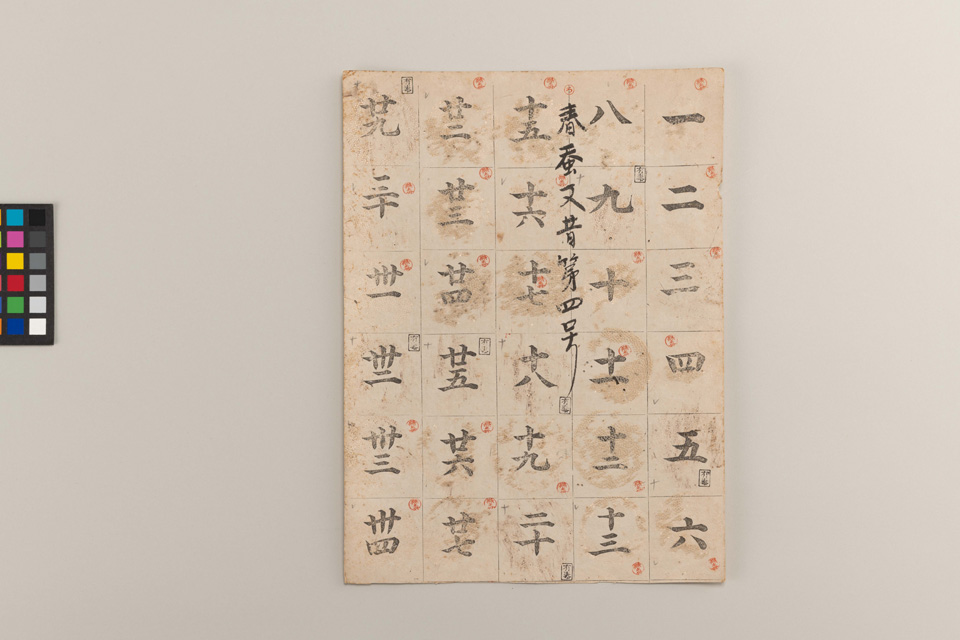 一
二
三
四
五
六
八
九
十
十一
十二
十三
春蚕又昔第四号
十五
十六
十七
十八
十九
二十
廿二
廿三
廿四
廿五
廿六
廿七
廿九
三十
卅一
卅二
卅三
卅四